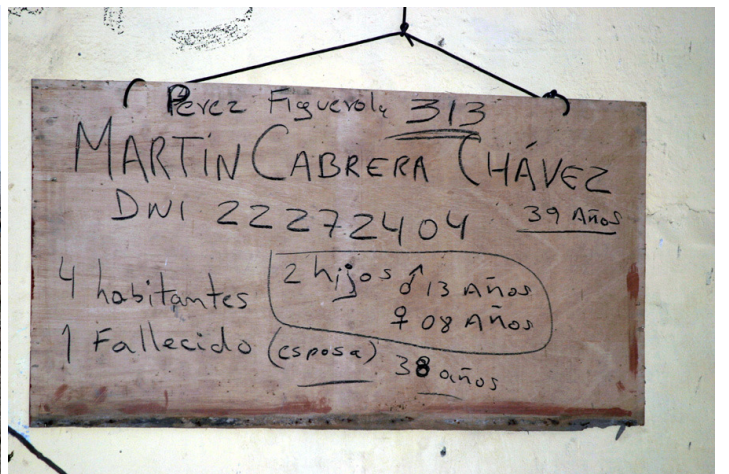 Pérez Figuerola 313
MARTÍN CABRERA CHÁVEZ
DNI 22272404 39 AÑOS
4 habitantes 2 hijos ♂ 13 AÑOS
♀ 08 AÑOS
1 Fallecido (esposa) 38 años